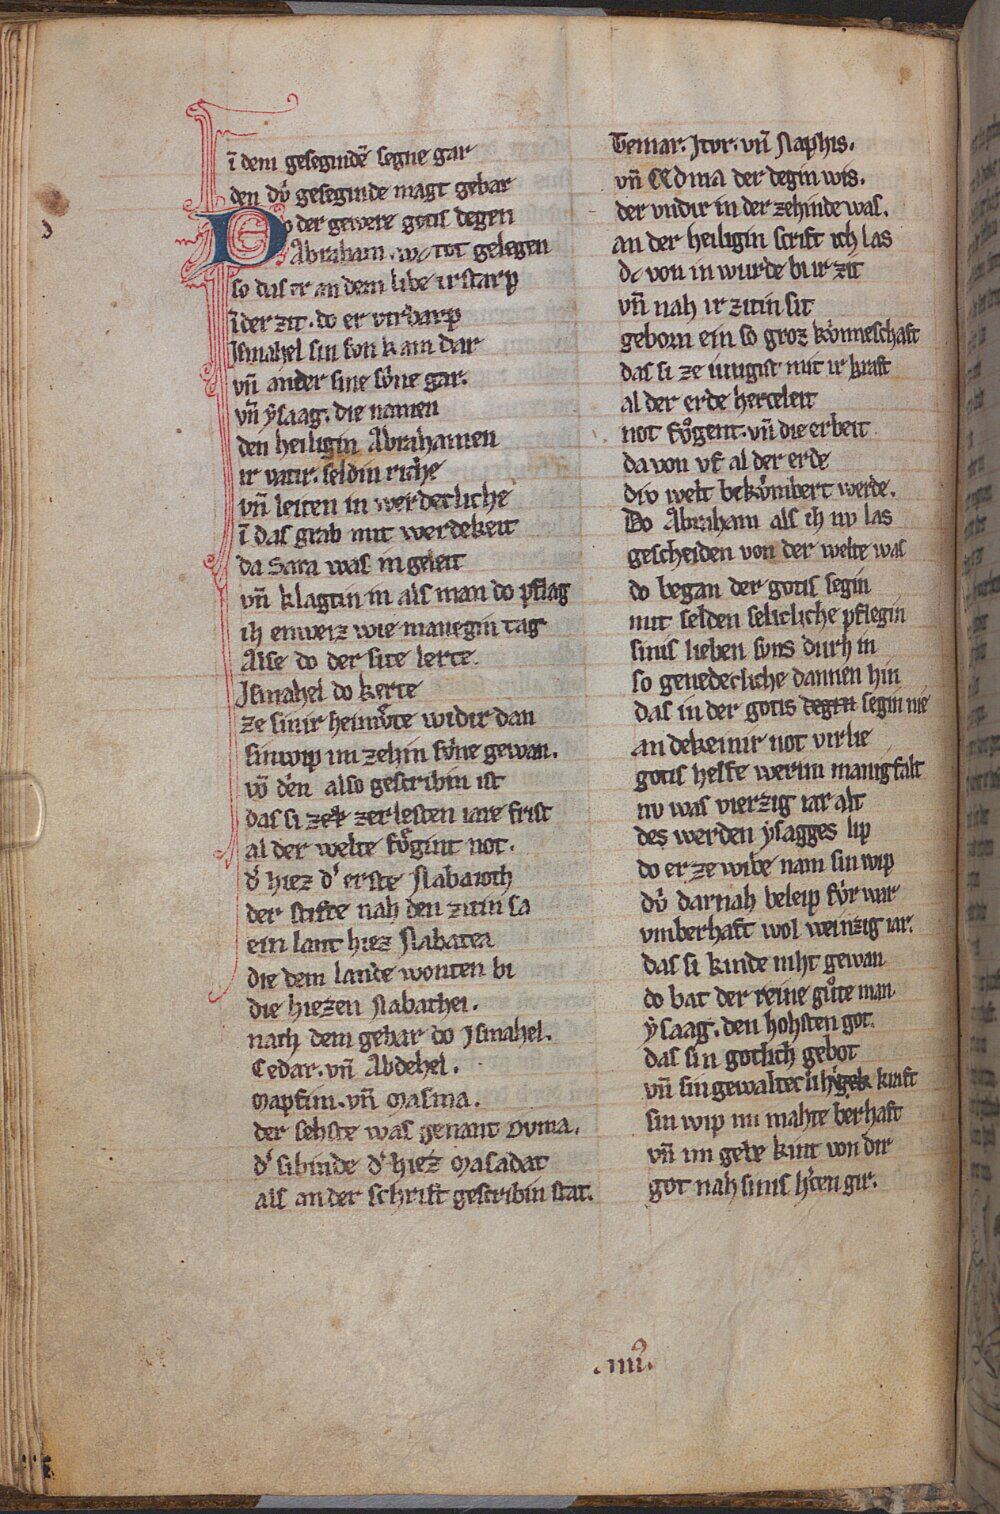 ı̄ dem gesegindē segne gar
den dv̓ gesegnide magt gebar
Do der gewere gotis degen
Abraham. wc tot gelegen
so das er an dem libe irstarp
ı̄ der zit. do er virdarp
Ismahel sin svn kam dar
vn̄ ander sine sv̓ne gar.
vn̄ ẏsaag. die namen
den heiligin Abrahamen
ir vatir. seldin riche
vn̄ leiten in werdecliche
ı̄ das grab mit werdekeit
da Sara was in geleit
vn̄ klagtin in als man do pflag
ih enweiz wie manegin tag
Alse do der site lerte.
Ismahel do kerte
ze sinir heimv̊te widir dan
sin wip im zehin sv̓ne gewan.
vō dēn also gescribin ist
das si zek zerlesten iare frist
al der welte fv̊gint not.
d̓ hiez d̓ erste Nabaioth
der stifte nah den zitin sa
ein lant hiez Nabatea
die dem lande wonten bi
die hiezen Nabathei.
nach dem gebar do Ismahel.
Cedar. vn̄ Abdehel.
Mapsim. vn̄ Masma.
der sehste was genant Dvma.
d̓ sibinde d̓ hiez Masadat
als an der schrift gescribin stat.
Temar. Itvr. vn̄ Naphis.
vn̄ Cedma der degin wis.
der vndir in der zehinde was.
an der heiligin scrift ich las
dc von in wurde bi ir zit
vn̄ nah ir zitin sit
geborn ein so groz kv̓nneschaft
das si ze iungist mit ir kraft
al der erde herceleit
not fv̊gent. vn̄ die erbeit
da von vf al der erde
div welt bekv̓mbert werde.
Do Abraham als ih nv las
gescheiden von der welte was
do began der gotis segin
mit selden selicliche pflegin
sinis lieben svns durh in
so genedecliche dannen hin
das in der gotis degen segin nie
an dekeinir not virlie
gotis helfe werim manigfalt
nv was vierzig iar alt
des werden ẏsagges lip
do er ze wibe nam sin wip
dv̓ darnah beleip fv̓r war
vmberhaft wol weinzig iar.
das si kinde niht gewan
do bat der reine gv̊te man.
ẏsaag. den hohsten got.
das sin gotlich gebot
vn̄ sin gewalteclih̓gek kraft
sin wip im mahte berhaft
vn̄ im gebe kint von dir
got nah sinis h̓cen gir.
.iiii᷒.